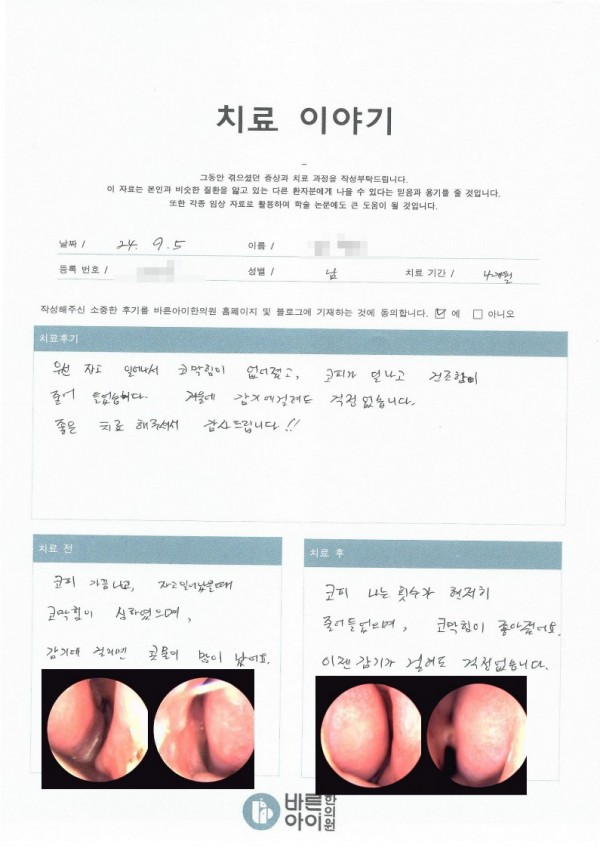 치료 이야기
그동안 겪으셨던 증상과 치료 과정을 작성부탁드립니다.
이 자료는 본인과 비슷한 질환을 앓고 있는 다른 환자분에게 나을 수 있다는 믿음과 용기를 줄 것입니다.
또한 각종 임상 자료로 활용하며 학술 논문에도 큰 도움이 될 것입니다.
날짜 / 24. 9. 5 이름 /
등록 번호 / 성별 / 남 치료 기간 / 4개월
작성해주신 소중한 후기를 바른아이한의원 홈페이지 및 블로그에 기재하는 것에 동의합니다. 예 아니오
치료후기
우선 자고 일어나서 코막힘이 없어졌고, 코피가 덜나고 건조함이
줄어 들었습니다. 겨울에 감기에걸려도 걱정없습니다.
좋은 치료 해주셔서 감사드립니다!!
치료 전
코피 가끔나고, 자고일어났을때
코막힘이 심하였으며,
감기에 걸리면 콧물이 많이 났어요.
치료 후
코피 나는 횟수가 현저히
줄어들었으며, 코막힘이 좋아졌어요.
이젠 감기가 걸려도 걱정없습니다.
바른
아이
한의원